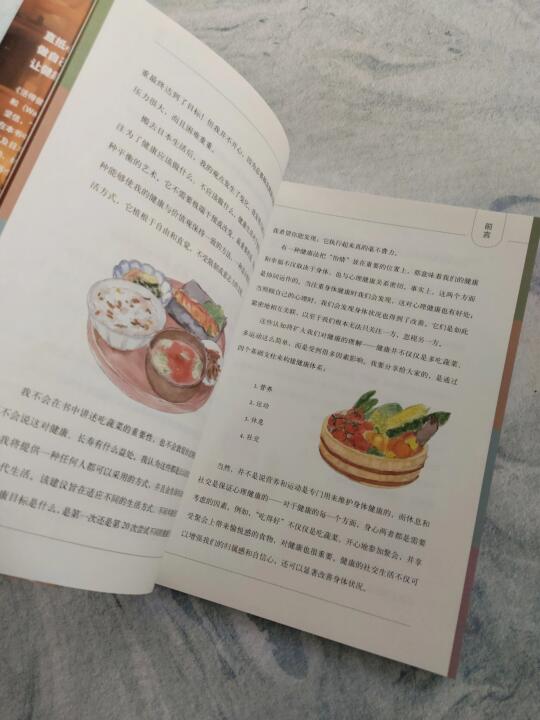 重最终达到了目标！但我并不开心，因为
压力很大，而且困难重重。
搬去日本生活后，我的观点发生了变化。
注为了健康应该做什么、不应该做什么，健康
种平衡的艺术，它不需要极端干预或改变，最重要的
种能够使我的健康与价值观保持一致的方法，一种
活方式，它植根于自由和直觉，不受
我不会在书中讲述吃蔬菜的重要性，也不会
不会说这对健康、长寿有什么益处，我认为这些都是
我将提供一种任何人都可以采用的方式，并且
代生活，该建议旨在适应不同的生活方式、不同
康目标是什么，是第一次还是第20次尝试
前言
我希望你能发现，它执行起来真的毫不费力。
有一种健康法把“怡情”放在重要的位置上，那意味着我们的健康
和幸福不仅取决于身体，也与心理健康关系密切。事实上，这两个方面
是协同运作的。当注重身体健康时我们会发现，这对心理健康也有好处；
当照顾自己的心理时，我们会发现身体状况也得到了改善。它们是如此
紧密地相互关联，以至于我们根本无法只关注一方，忽视另一方。
这些认知将扩大我们对健康的理解——健康并不仅仅是多吃蔬菜、
多运动这么简单，而是受到很多因素影响。我要分享给大家的，是通过
四个基础支柱来构建健康体系：
1. 营养
2. 运动
3. 休息
4. 社交
当然，并不是说营养和运动是专门用来维护身体健康的，而休息和
社交是保证心理健康的——对于健康的每一个方面，身心两者都是需要
考虑的因素。例如，“吃得好”不仅仅是吃蔬菜。开心地参加聚会，并享
受聚会上带来愉悦感的食物，对健康也很重要。健康的社交生活不仅可
以增强我们的归属感和自信心，还可以显著改善身体状况。